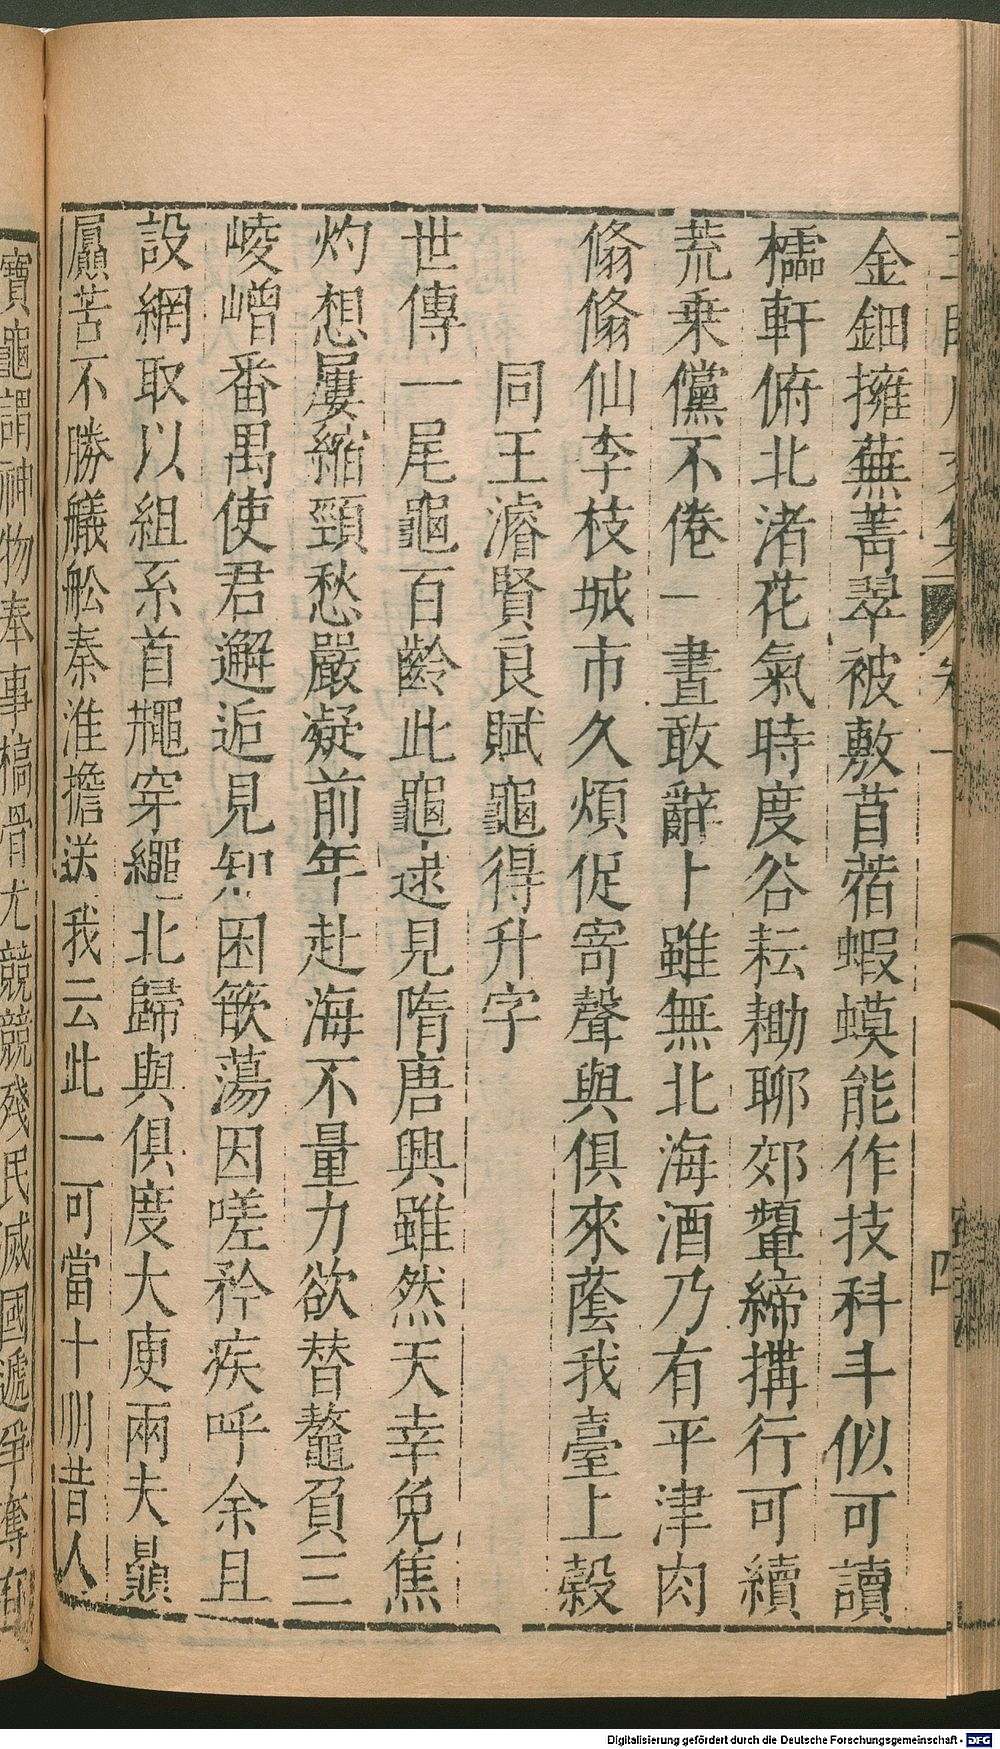 金鈿擁蕪菁翠被敷苜蓿蝦蟆能作技科斗似可讀
櫺軒俯北渚花氣時度谷耘耡聊郊葦締搆行可續
荒乗儻不倦一晝敢辭卜雖無北海酒乃有平津肉
翛翛仙李枝城市久煩促寄聲與俱來蔭我臺上榖
同王濬賢良賦龜得升字
世傳一尾龜百齡此龜逮見隋唐興雖然天幸免焦
灼想屢縮頸愁嚴凝前年赴海不量力欲替鼇負三
崚嶒番禺使君邂逅見知困簸蕩因嗟矜疾呼余且
設網取以組系首𦅸穿繩北歸與俱度大庾兩夫贔
屭苦不勝艤舩秦淮擔送我云此一可當十朋昔人
寶龜謂神物奉事槁骨尤競競殘民滅國遞爭奪
四
Digitalisierung gefördert durch die Deutsche Forschungsgemeinschaft - DFG